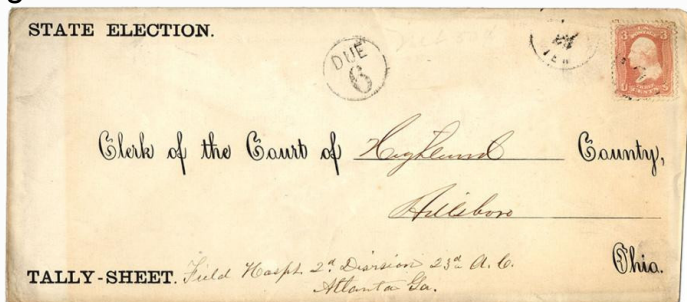 STATE ELECTION.
DUE
6
3 3
Clerk of the Court of Highland County,
Hillsboro
Ohio.
TALLY-SHEET. Field Hospt. 2d Division 23d A. C.
Atlanta Ga.